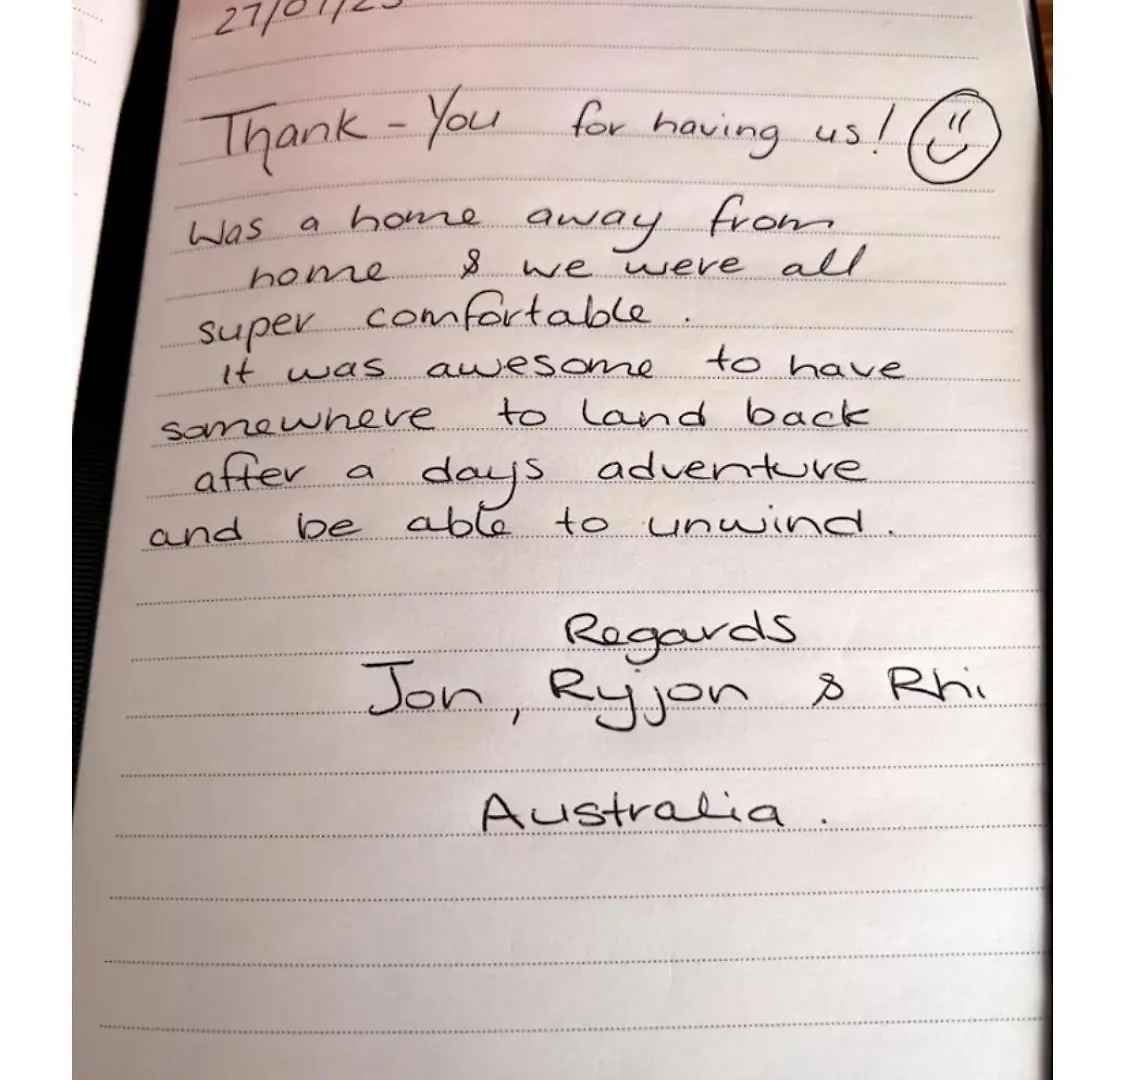 Thank-You for having us!
Was a home away from
home & we were all
super comfortable.
it was awesome to have
somewhere to land back
after a days adventure
and be able to unwind.
Regards
Jon, Ryjon & Rhi
Australia.